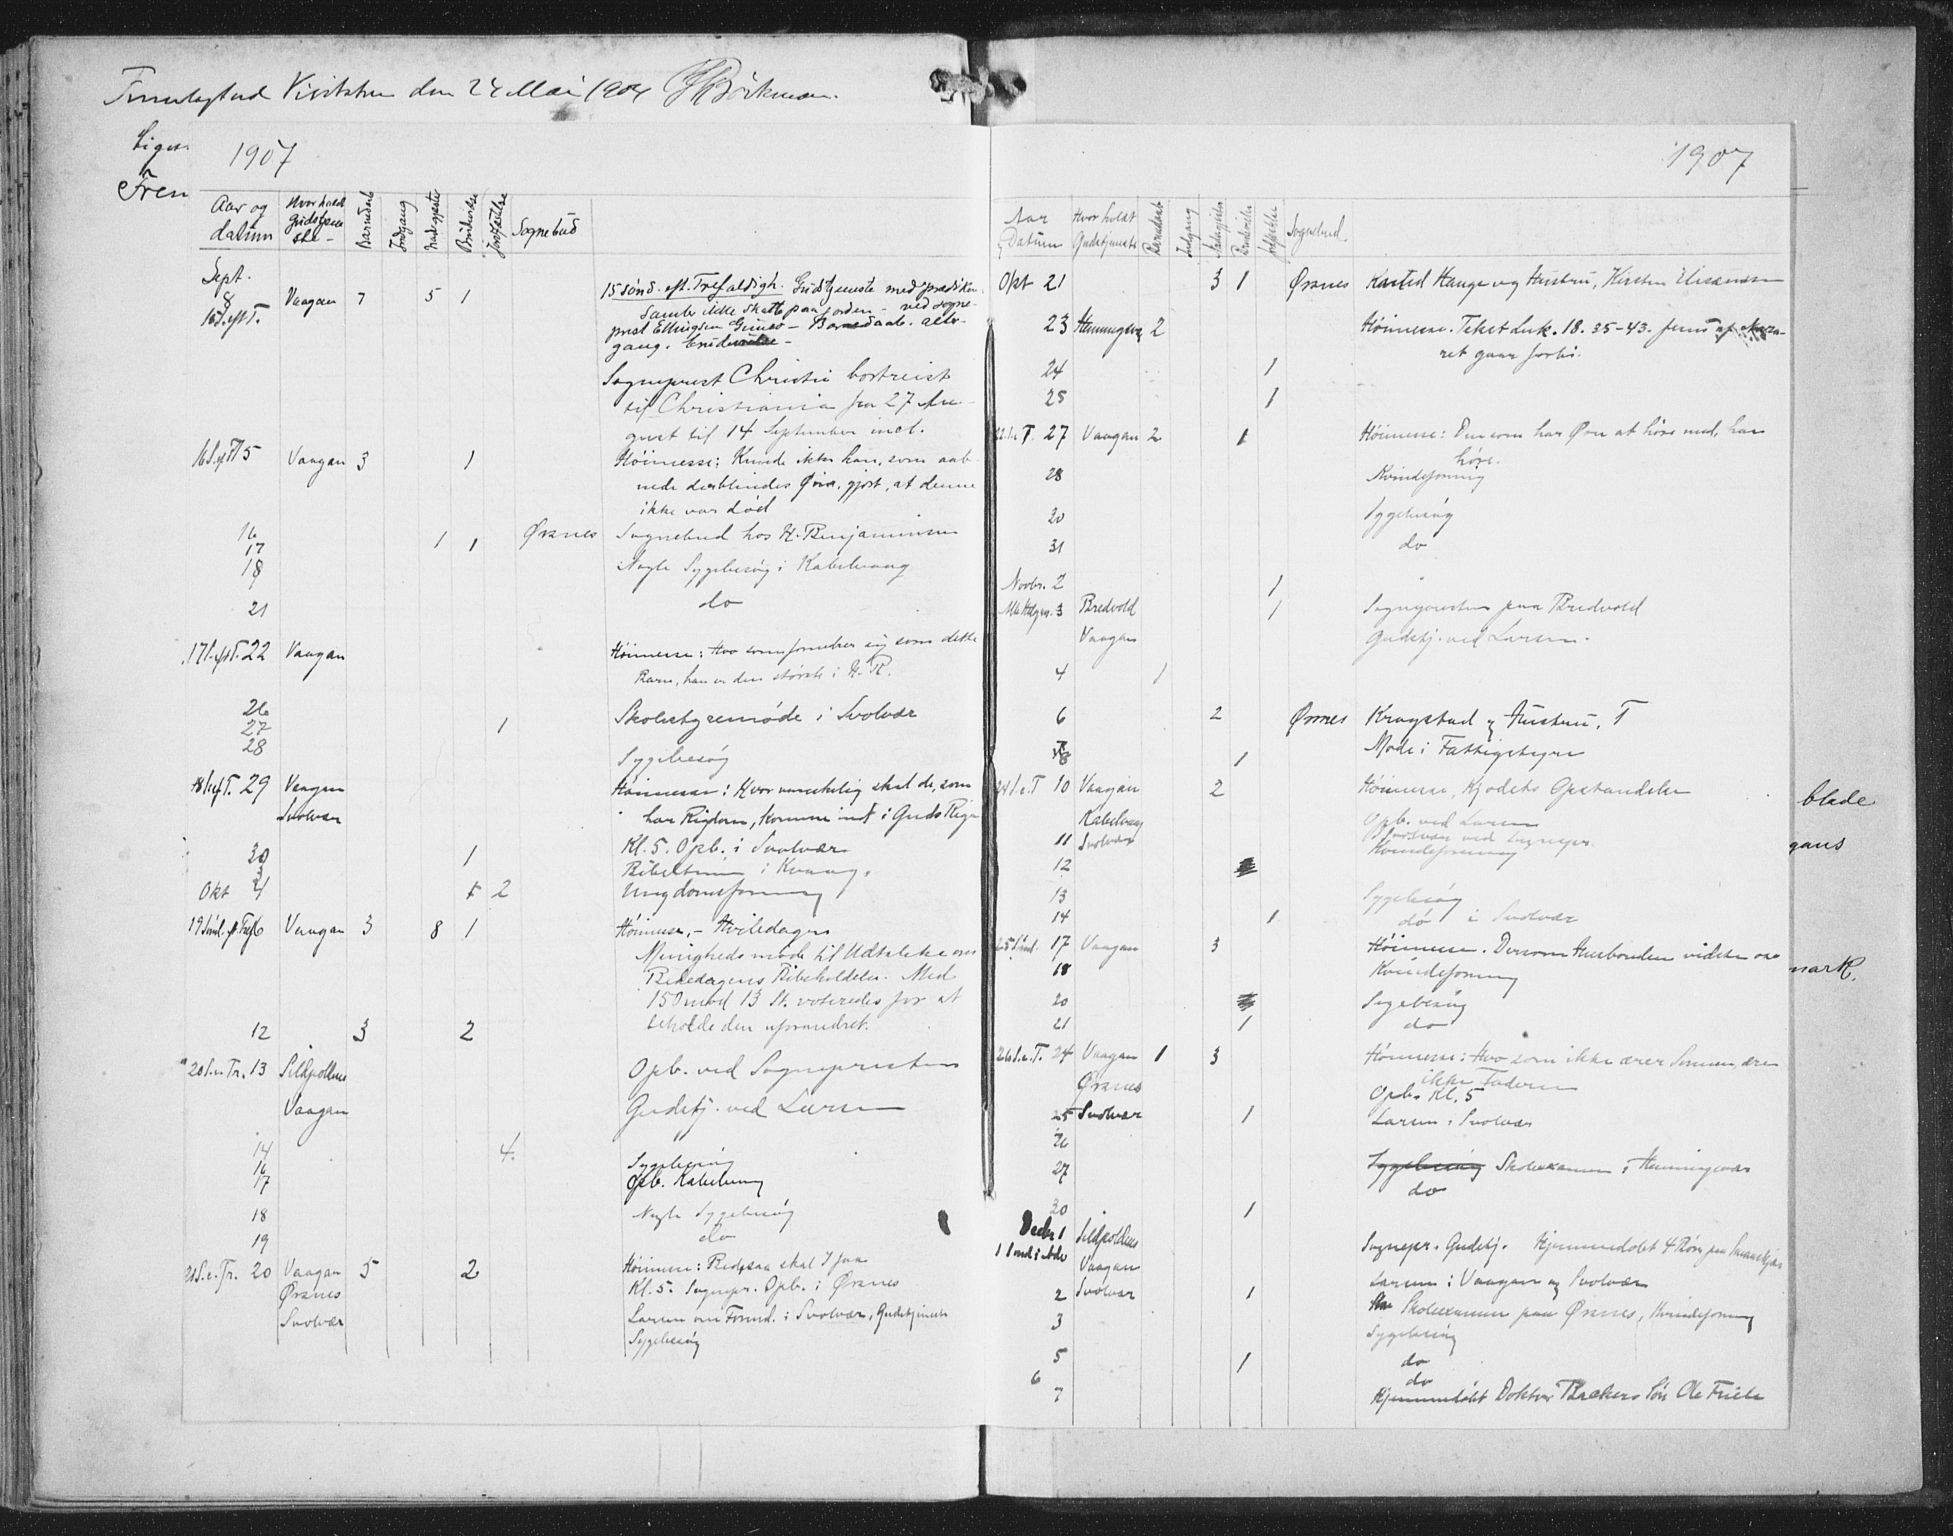 Visitation den 24 Mai 1904 Böckman.
1907
Fren
Aar og datum Hvor holdt Gudstjeneste Barnedaab Indgang Nadgjeste Brudevielse Jordfæstelse Sognebud
Sept. 8 Vaagan 7 5 1 15 sønd. eft. Trefoldigh. Gudstjeneste med prædiken.
16 S. eft. T. Samler ikke skatte paa jorden - ved sogne-
prest Ellingsen Gimsø - Barnedaab. alter-
gang.
Sogneprest Christie bortreist
til Christiania fra 27 Au-
gust til 14 September incl.
16 S. eft T 15 Vaagan 3 1 Høimesse: Kunde ikke han, som aab-
nede den blindes Øine, gjort, at denne
ikke var død
16 1 Ørsnes Sognebud hos H. Benjaminsen
17 1
18 Nogle Sygebesøg i Kabelvaag
21 do
17 S. eft T. 22 Vaagan Høimesse: Hvo som fornedrer sig som dette
Barn, han er den største i H. R.
26 Skolestyremøde i Svolvær
27 1
28 Sygebesøg
18 S. eft T. 29 Vaagan Høimesse: Hvor vanskelig skal de, som
Svolvær har Rigdom, komme ind i Guds Rige
Kl. 5. Opb. i Svolvær
30 1 Bibeltime i Kvaag.
Okt 4 1 2 Ungdomsforening
19 Sønd. eft Tref 6 Vaagan 3 8 1 Høimesse. - Hviledagen
Menighedsmøde til Udtalelse om
Bededagens Bibeholdelse. Med
150 mod 13 St. voteredes for at
beholde den uforandret.
12 3 2
20 S. e. Tr. 13 Sildpollens Opb. ved Sognepresten
Vaagan Gudstj. ved Larsen
14 4.
16 Sygebesøg
17 Opb. Kabelvaag
18 Nogle Sygebesøg
19 do
21 S. e. Tr. 20 Vaagan 5 2 Høimesse:
Ørsnes Kl. 5. Sognepr. Opb. i Ørsnes
Svolvær Larsen om Formd. i Svolvær, Gudstjeneste
Sygebesøg
1907
Aar Datum Hvor holdt Gudstjeneste Barnedaab Indgang Nadgjeste Brudevielse Jordfæstelse Sognebud.
Okt 21 3 1 Ørsnes Karsted Hauge og Hustru, Kirsten
23 Henningsv. 2 Høimesse. Tekst Luk. 18. 35-43. Jesus af Naza-
ret gaar forbi.
24 1
25 1
22 S. e T. 27 Vaagan 2 1 Høimesse: Den som har Øre at høre med, han
høre.
28 Kvindeforening
30 Sygebesøg
31 do
Novbr. 2 1
3 Bredvold 1 Sognepresten paa Bredvold
Vaagan Gudstj. ved Larsen.
4 1
6 2 Ørsnes Krogstad og Hustru. T
7 Møde i Fattigstyre
8 1
24 S. e. T 10 Vaagan 2 Høimesse, Kjødets Opstandelse
Kabelvaag Opb. ved Larsen
11 Svolvær Svolvær ved Sognepr.
Kvindeforening
12
13 Sygebesøg
14 1 do i Svolvær
25 Sønd. 17 Vaagan 3 Høimesse. Dersom Husbonden vidste osv
18 Kvindeforening
20 Sygebesøg
21 1 do
26 S. e. T. 24 Vaagan 1 3 Høimesse: Hvo som ikke ærer Sønnen, ærer
ikke Faderen
Ørsnes Opb. Kl. 5
25 Svolvær 1 Larsen i Svolvær
26
27 Sygebesøg Skoleexamen i Henningsvær
do
30 1
Decbr 1 Sildpollens Sognepr. Gudstj. Hjemmedøbt 4 Børn paa
1 Sønd i Adv Vaagan Larsen i Vaagan og Svolvær
2 Svolvær 1 Skoleexamen paa Ørsnes, Kvindeforening
3 Sygebesøg
5 1 do
6 do
7 Hjemmedøbt Doktor Backers Søn Ole Friele
blade
gans
mark.